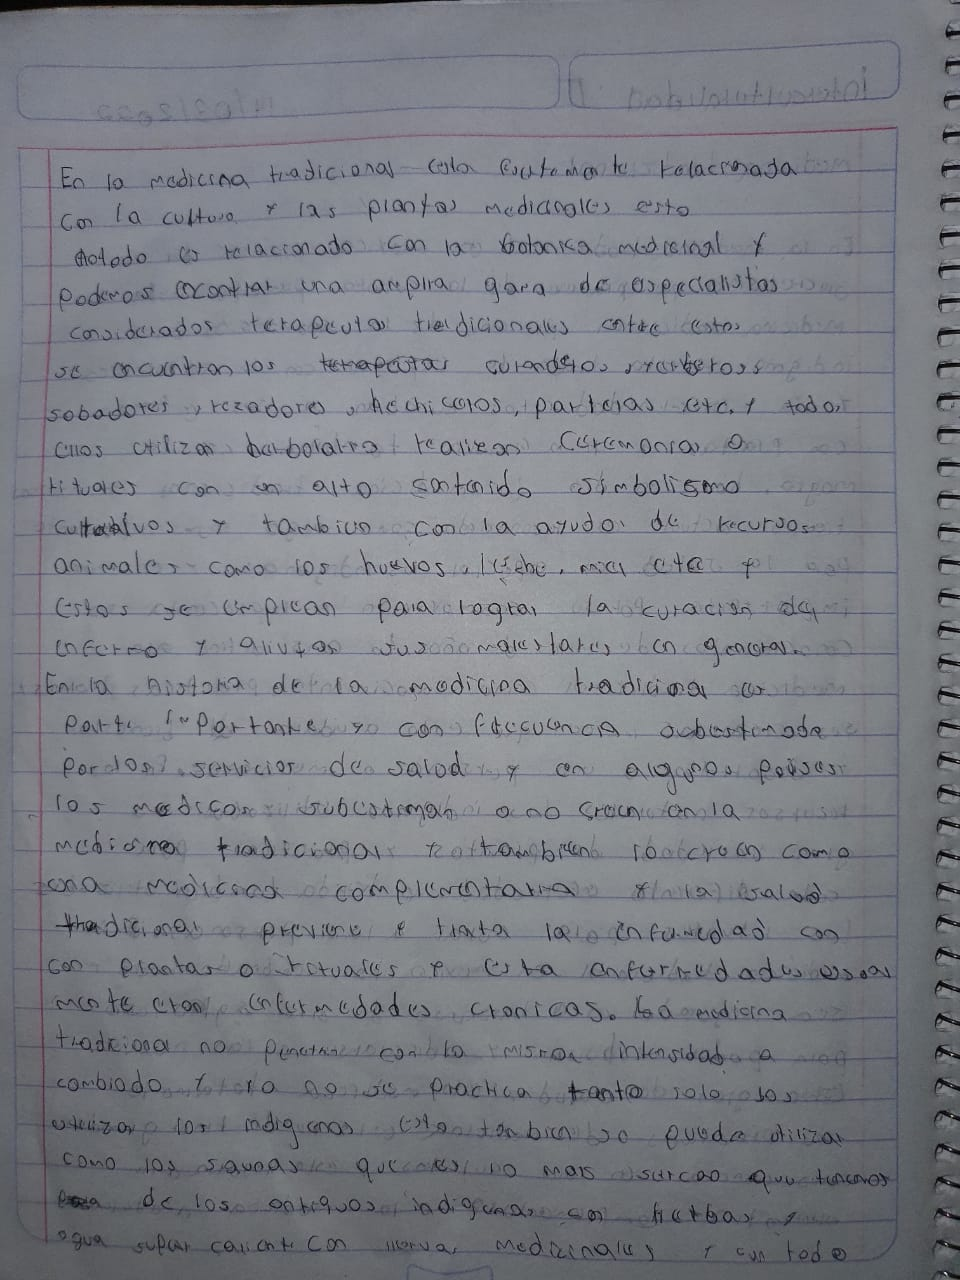 En la medicina tradicional esta fuertemente relacionada
con la cultura y las plantas medicinales esto
todo es relacionado con la botanica medicinal y
podemos econtrar una amplia gara de especialistas
considerados terapeuta tradicionales entre estos
se encuentran los terapeutas curanderos, yerberos,
sobadores, rezadores, hechiceros, parteras etc, y todo,
ellos utilizan realizan ceremonia o
rituales con un alto contenido simbolismo
y tambien con la ayuda de recursos
animales como los huevos, leche, miel etc y
estos se emplean para lograr la curacion del
enfermo y sus malestares en general.
En la historia de la medicina tradiciona es
parte importante y con frecuencia subestimada
por los servicios de salod y en algunos países
los medicos subestiman o no creen en la
medicina tradicional tambien lo creen como
una medicina complementaria y la salod
tradicional previene y trata la enfermedad con
con plantas o rituales y esta enfermedades
mente eran enfermedades cronicas. La medicina
tradiciona no con la misma intensidad a
cambiado y ya no se practica tanto solo los
utilizan los indigenas esto tanbien se puede utilizar
como los saunas que es no mas que tenemos
de los antiguos indigenas con hierbas y
agua super caliente con medicinales y con todo